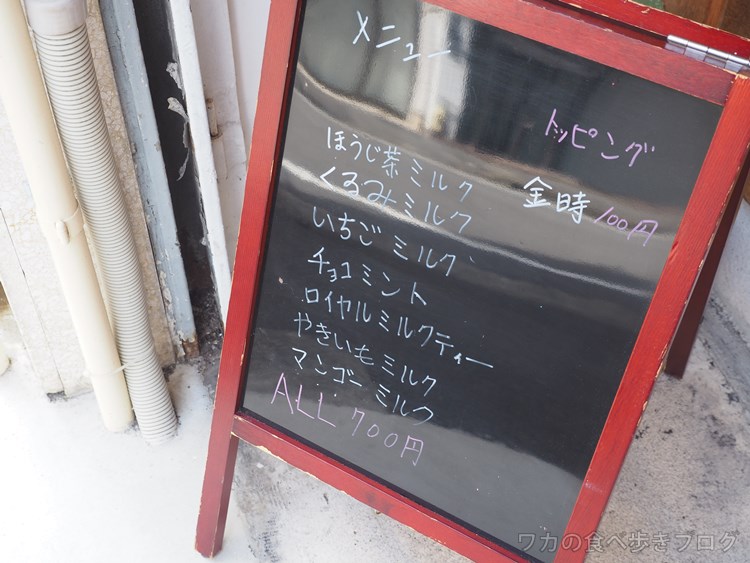 メニュー
ほうじ茶ミルク
くるみミルク
いちごミルク
チョコミント
ロイヤルミルクティー
やきいもミルク
マンゴーミルク
ALL 700円
トッピング
金時 100円
ワカの食べ歩きブログ